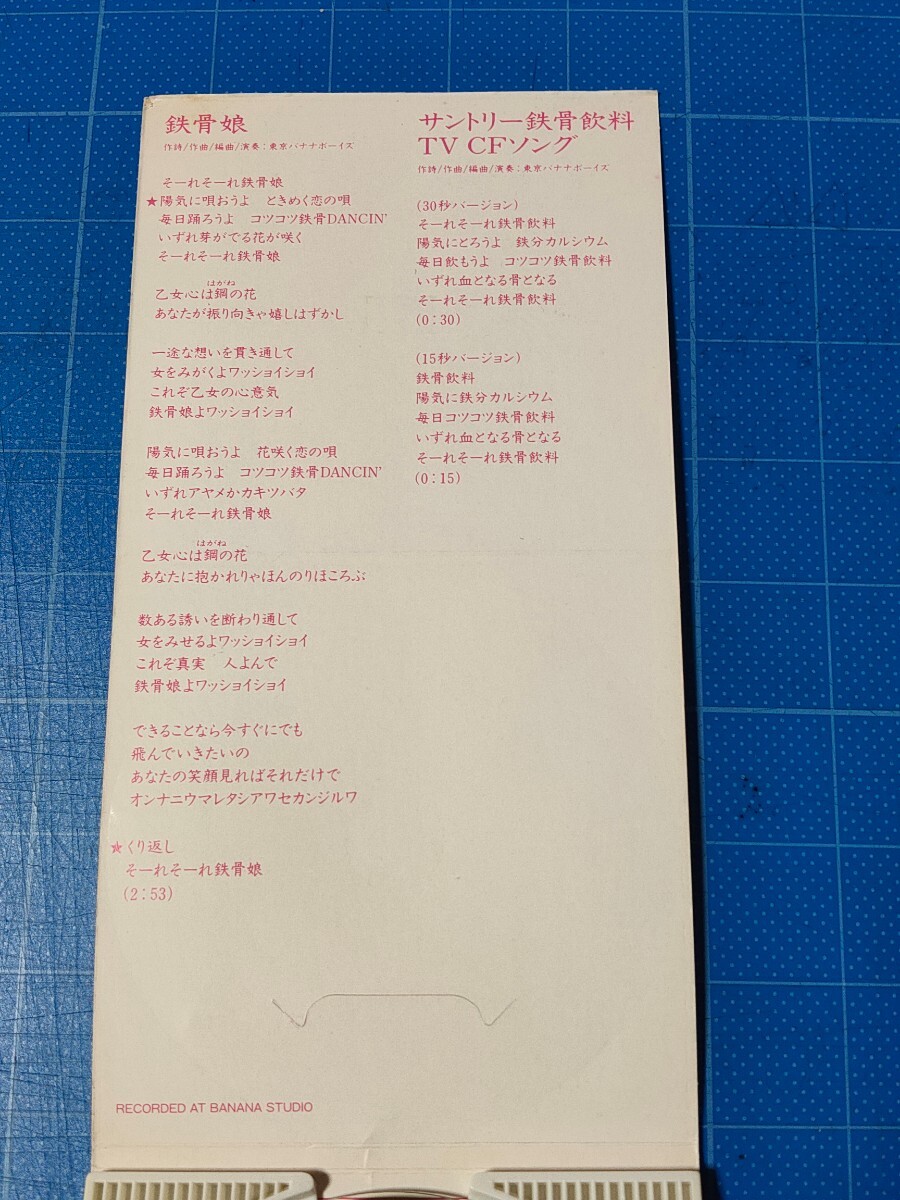 鉄骨娘
作詩/作曲/編曲/演奏：東京バナナボーイズ
そーれそーれ鉄骨娘
★陽気に唄おうよ　ときめく恋の唄
毎日踊ろうよ　コツコツ鉄骨DANCIN'
いずれ芽がでる花が咲く
そーれそーれ鉄骨娘
はがね
乙女心は鋼の花
あなたが振り向きゃ嬉しはずかし
一途な想いを貫き通して
女をみがくよワッショイショイ
これぞ乙女の心意気
鉄骨娘よワッショイショイ
陽気に唄おうよ　花咲く恋の唄
毎日踊ろうよ　コツコツ鉄骨DANCIN'
いずれアヤメかカキツバタ
そーれそーれ鉄骨娘
はがね
乙女心は鋼の花
あなたに抱かれりゃほんのりほころぶ
数ある誘いを断わり通して
女をみせるよワッショイショイ
これぞ真実　人よんで
鉄骨娘よワッショイショイ
できることなら今すぐにでも
飛んでいきたいの
あなたの笑顔見ればそれだけで
オンナニウマレタシアワセカンジルワ
★くり返し
そーれそーれ鉄骨娘
(2：53)
サントリー鉄骨飲料
TV CFソング
作詩/作曲/編曲/演奏：東京バナナボーイズ
(30秒バージョン)
そーれそーれ鉄骨飲料
陽気にとろうよ　鉄分カルシウム
毎日飲もうよ　コツコツ鉄骨飲料
いずれ血となる骨となる
そーれそーれ鉄骨飲料
(0：30)
(15秒バージョン)
鉄骨飲料
陽気に鉄分カルシウム
毎日コツコツ鉄骨飲料
いずれ血となる骨となる
そーれそーれ鉄骨飲料
(0：15)
RECORDED AT BANANA STUDIO